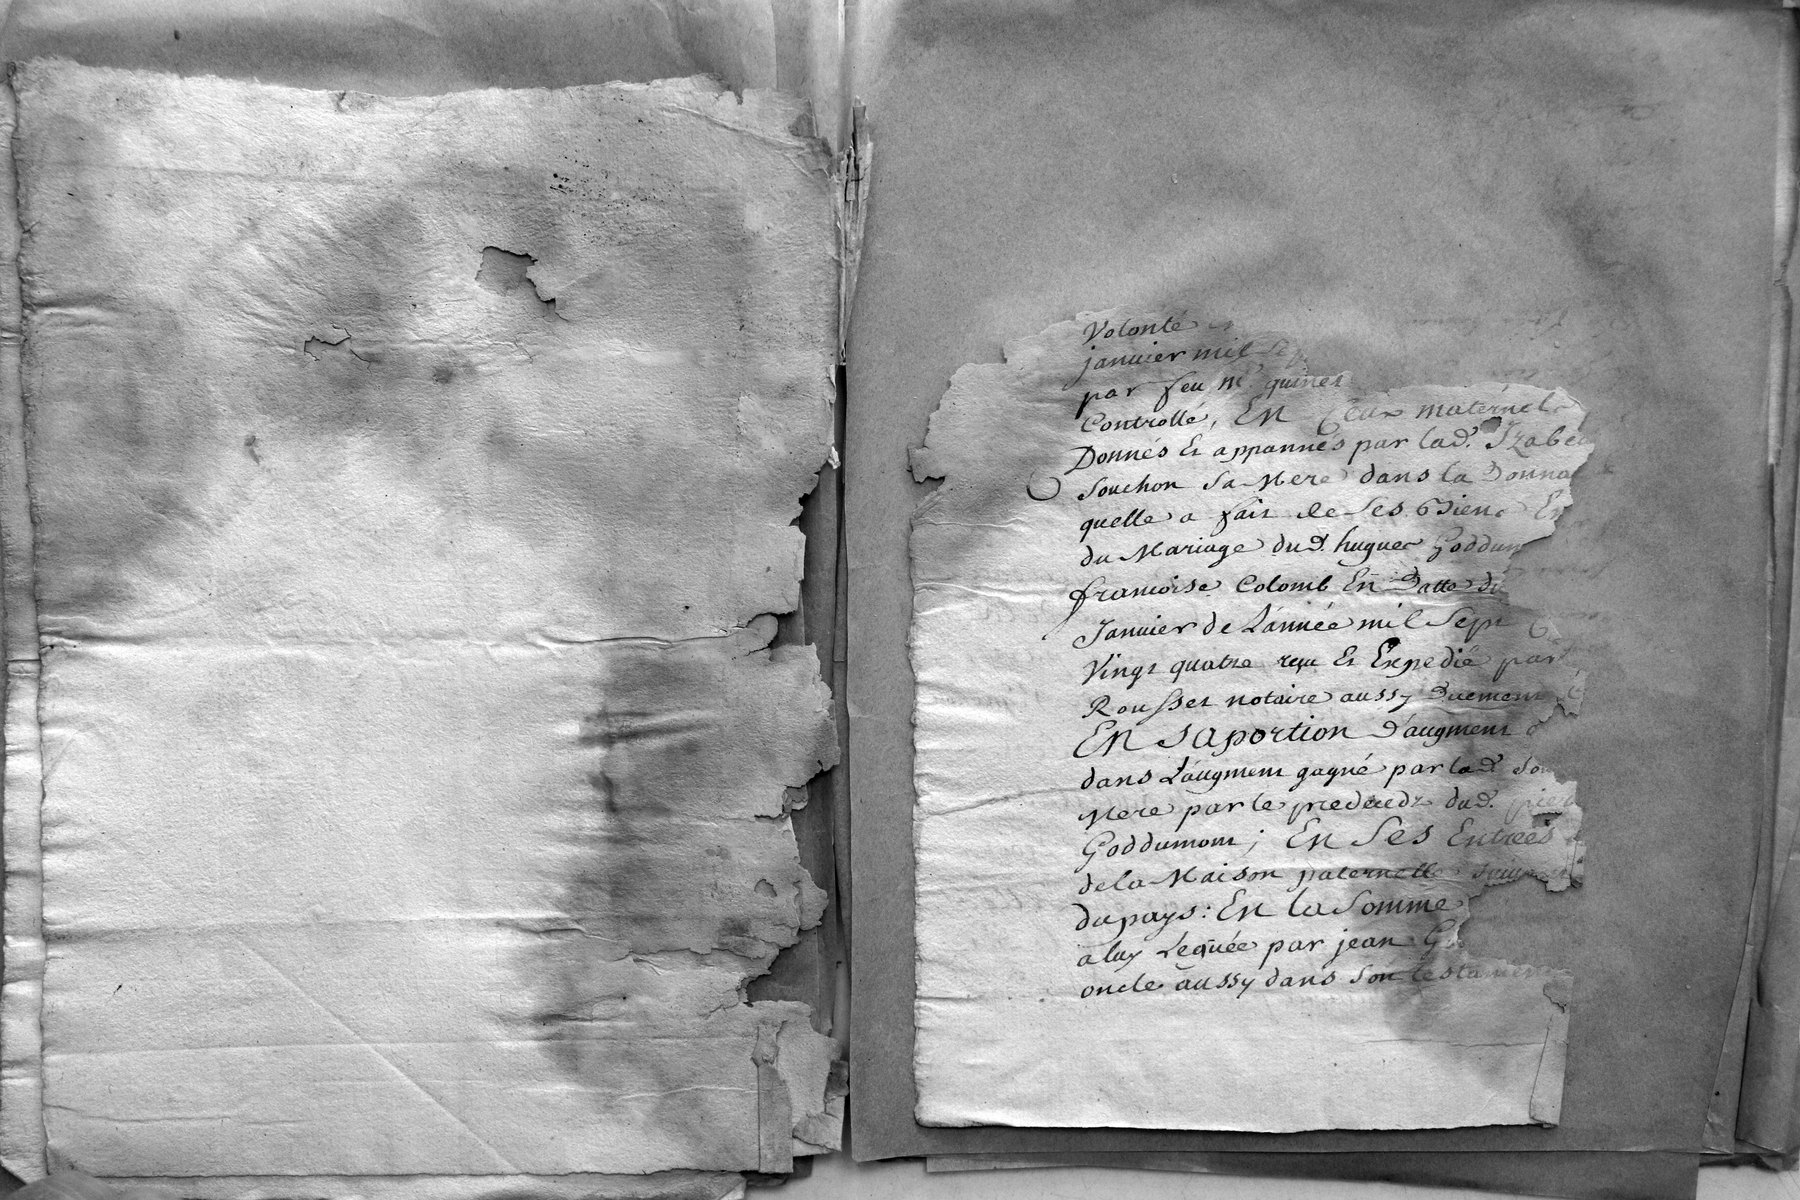 Volonté
janvier mil sep
par feu m.e quines
Controllé, En Ceux maternels
Donnés Et appannés par lad.e Izabea
Souchon Sa Mere dans la Donna
quelle a fait de Ses Biens En
du Mariage dud. hugues Goddum
francoise Colomb En Datte du
Janvier de L'année mil Sept
Vingt quatre reçu Et Expedié par
Rousset notaire aussy Duement
En Saportion D'augment
dans L'augment gagné par lad.e
Mere par le predecedz dud.
Goddumom ; En Ses Entrées
de la Maison paternelle
du pays : En la Somme
a luy Leguée par jean G
oncle aussy dans Son testamen